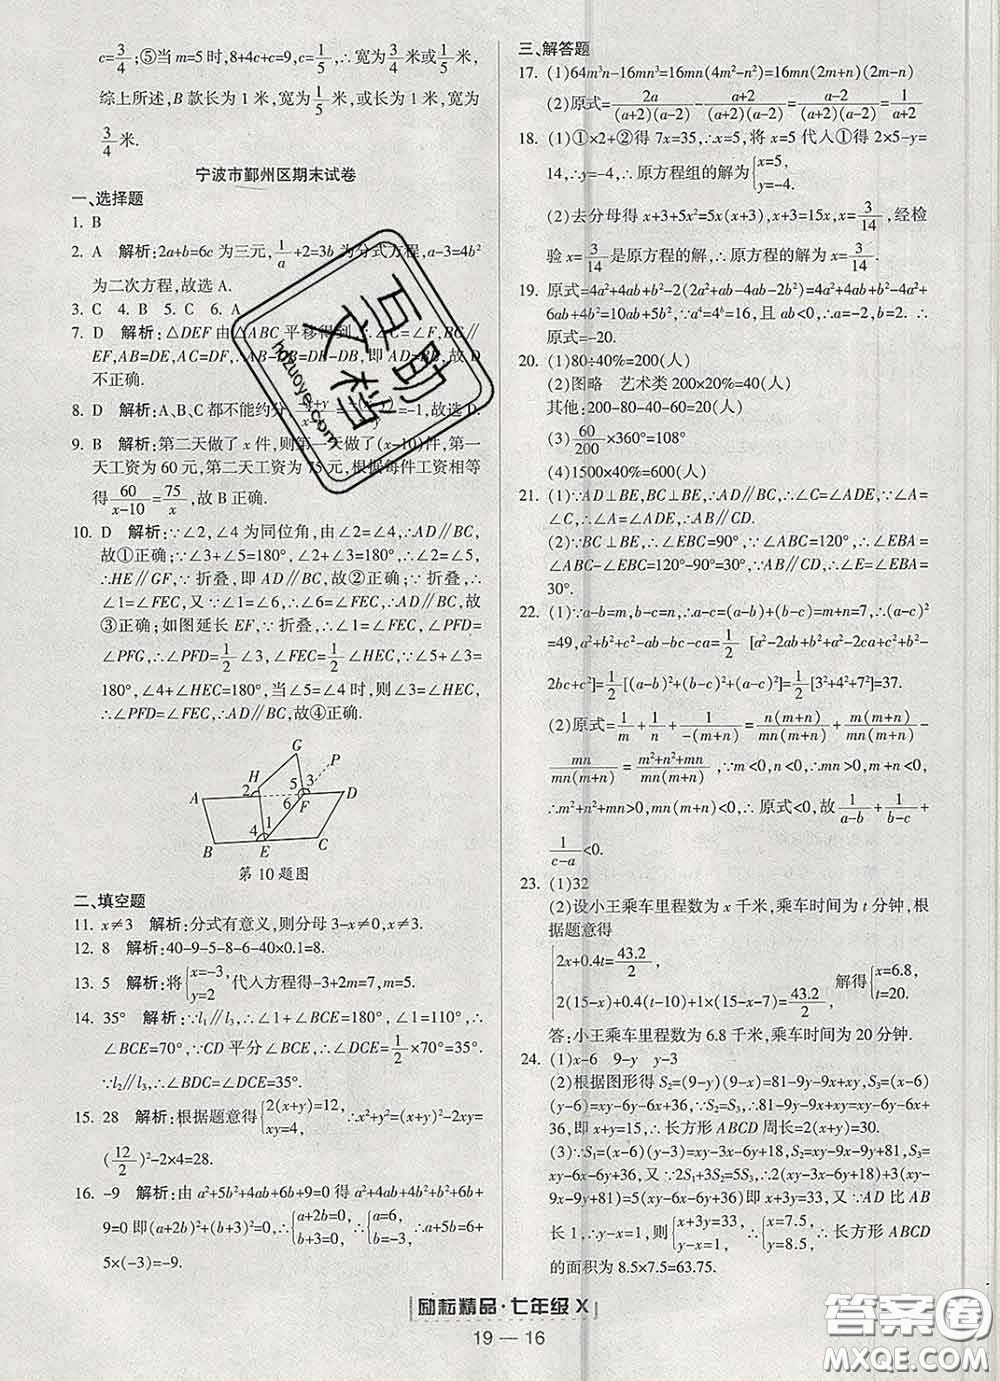 c=3/4;⑤当 m=5时,8+4c+c=9,c=1/5,∴宽为3/4米或1/5米,
综上所述,B款长为1米,宽为1/5米或长为1米,宽为
3/4米.
宁波市鄞州区期末试卷
一、选择题
1. B
2. A 解析:2a+b=6c为三元,1/a+2=3b为分式方程,a-3=4b²
为二次方程,故选A.
3. C 4. B 5. C 6. A
7. D 解析:△DEF由△ABC平移得到,∴∠C=∠F,BC∥
EF,AB=DE,AC=DF,AB-DB=DE-DB,即AD=BE,故D
不正确.
8. D 解析:A、B、C都不能约分, =-1,故选D.
9. B 解析:第二天做了x件,则第一天做了(x-10)件,第一
天工资为60元,第二天工资为75元,根据每件工资相等
得60/(x-10)=75/x,故B正确.
10. D 解析:∵∠2,∠4为同位角,由∠2=∠4,∴AD∥BC,
故①正确;∵∠3+∠5=180°,∠2+∠3=180°,∴∠2=∠5,
∴HE∥GF,∵折叠,即AD∥BC,故②正确;∵折叠,∴
∠1=∠FEC,又∵∠1=∠6,∴∠6=∠FEC,∴AD∥BC,故
③正确;如图延长EF,∵折叠,∴∠1=∠FEC,∠PFD=
∠PFG,∴∠PFD=1/2∠3,∠FEC=1/2∠HEC,∵∠5+∠3=
180°,∠4+∠HEC=180°,当∠5=∠4时,则∠3=∠HEC,
∴∠PFD=∠FEC,∴AD∥BC,故④正确.
G
P
H
5 3
2
A 6 F D
4 1
B E C
第10题图
二、填空题
11. x≠3 解析:分式有意义,则分母3-x≠0,∴x≠3.
12. 8 解析:40-9-5-8-6-40×0.1=8.
13. 5 解析:将{x=-3, y=2,代入方程得-3+2m=7,m=5.
14. 35° 解析:∵l₁∥l₃,∴∠1+∠BCE=180°,∠1=110°,∴
∠BCE=70°,∵CD平分∠BCE,∴∠DCE=1/2×70°=35°.
∵l₂∥l₃,∴∠BDC=∠DCE=35°.
15. 28 解析:根据题意得{2(x+y)=12, xy=4,∴x²+y²=(x+y)²-2xy=
(12/2)²-2×4=28.
16. -9 解析:由a²+5b²+4ab+6b+9=0得a²+4ab+4b²+b²+6b+
9=0即(a+2b)²+(b+3)²=0,∴{a+2b=0, b+3=0,∴{a=6, b=-3,∴a+5b=6+
5×(-3)=-9.
三、解答题
17. (1)64m³n-16mn³=16mn(4m²-n²)=16mn(2m+n)(2m-n)
(2)原式=2a/((a+2)(a-2))-(a+2)/((a+2)(a-2))=(a-2)/((a+2)(a-2))=1/(a+2)
18. (1)①×2+②得7x=35,∴x=5,将x=5代入①得2×5-y=
14,∴y=-4,∴原方程组的解为{x=5, y=-4.
(2)去分母得x+3+5x²=5x(x+3),x+3=15x,x=3/14,经检
验x=3/14是原方程的解,∴原方程的解为x=3/14.
19. 原式=4a²+4ab+b²-2(2a²+ab-4ab-2b²)=4a²+4ab+b²-4a²+
6ab+4b²=10ab+5b²,∵a⁴=4⁴=16,且ab<0,∴a=-2,b=2. ∴
原式=-20.
20. (1)80÷40%=200(人)
(2)图略 艺术类200×20%=40(人)
其他:200-80-40-60=20(人)
(3)60/200×360°=108°
(4)1500×40%=600(人)
21. (1)∵AD⊥BE,BC⊥BE,∴AD∥BC,∴∠C=∠ADE,∵∠A=
∠C,∴∠A=∠ADE,∴AB∥CD.
(2)∵BC⊥BE,∴∠EBC=90°,∵∠ABC=120°,∴∠EBA=
∠ABC-∠EBC=120°-90°=30°,∵AB∥CD,∴∠E=∠EBA=
30°.
22. (1)∵a-b=m,b-c=n,∴a-c=(a-b)+(b-c)=m+n=7,∴(a-c)²
=49,a²+b²+c²-ab-bc-ca=1/2[a²-2ab+b²+a²-2ac+c²+b²-
2bc+c²]=1/2[(a-b)²+(b-c)²+(a-c)²]=1/2[3²+4²+7²]=37.
(2)原式=1/m+1/n+1/(-(m+n))=n(m+n)/(mn(m+n))+m(m+n)/(mn(m+n))-
mn/(mn(m+n))=(m²+n²+mn)/(mn(m+n)),∵m<0,n<0,∴mn>0,m+n<0,
∴m²+n²+mn>0,mn(m+n)<0,∴原式<0,故1/(a-b)+1/(b-c)+
1/(c-a)<0.
23. (1)32
(2)设小王乘车里程数为x千米,乘车时间为t分钟,根
据题意得
{2x+0.4t=43.2/2, 2(15-x)+0.4(t-10)+1×(15-x-7)=43.2/2 解得{x=6.8, t=20.
答:小王乘车里程数为6.8千米,乘车时间为20分钟.
24. (1)x-6 9-y y-3
(2)根据图形得S₂=(9-y)(9-x)=81-9y-9x+xy,S₃=(x-6)
(y-6)=xy-6x-6y+36,∵S₂=S₃,∴81-9y-9x+xy=xy-6y-6x+
36,∴x+y=15,∴长方形ABCD周长=2(x+y)=30.
(3)∵S₁=(x-6)(y-3)=xy-3x-6y+18,S₂=xy-9x-9y+81,S₃=
xy-6x-6y+36,又∵2S₁+3S₂=5S₃,∴2(xy-3x-6y+18)+3(xy-
9x-9y+81)=5(xy-6x-6y+36)即3x+3y=33,又∵AD比AB
长1,∴y-x=1,则{x+3y=33, y-x=1,∴{x=7.5, y=8.5,∴长方形ABCD
的面积为8.5×7.5=63.75.
励耘精品·七年级 X
19 — 16
互助文档
hdzuoye.com
答案圈
MXQE.COM